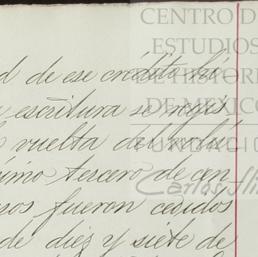 CENTRO DE
ESTUDIOS
DE HISTORIA
DE MÉXICO
FUNDACIÓN
Carlos Slim
d de ese crédito hi-
escritura se
vuelta del
imo tercero de
sos fueron cedidos
de diez y siete de